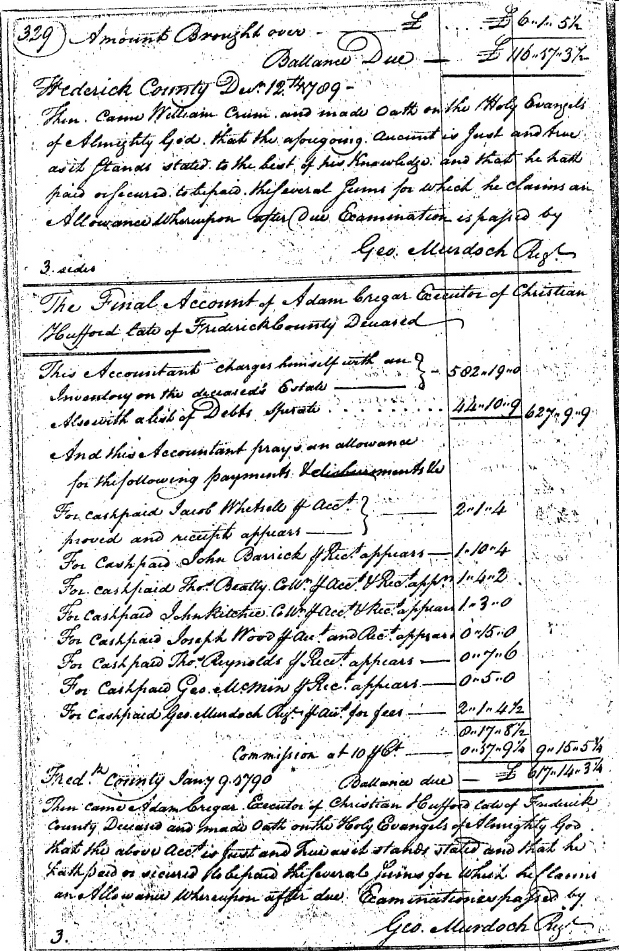 329 Amount Brought over - £ ... £ 6"1"5½
Ballance Due — £ 116"57"3½
Frederick County Decr. 12th 1789 -
Then Came William Crum and made Oath on the Holy Evangels
of Almighty God that the aforegoing Account is Just and true
as it Stands stated to the best of his Knowledge and that he hath
paid or Secured to be paid the several Sums for which he claims an
Allowance Whereupon after Due Examination is passed by
Geo. Murdoch Regr.
3. sides
The Final Account of Adam Cregar Executor of Christian
Hufford late of Frederick County Deceased
This Accountant charges himself with an } - 582"19"0
Inventory on the deceased's Estate
Also with a list of Debts Sperate ........ 44"10"9 627"9"9
And this Accountant prays an allowance
for the following payments & disbursments &c
For cash paid Jacob Whitsell ⅌ Acct. } — 2"1"4
proved and receipt appears
For Cash paid John Barrick ⅌ Rect. appears — 1"10"4
For cash paid Thos. Beatty Collr. ⅌ Acct. & Rect. appr. 1"4"2
For Cash paid John Ritchie Collr. ⅌ Acct. & Rect. appears 1"3"0
For Cash paid Joseph Wood ⅌ Acct. and Rect. appears 0"15"0
For Cash paid Thos. Reynolds ⅌ Rect. appears — 0"7"6
For Cash paid Geo. McMin ⅌ Rect. appears — 0"5"0
For Cash paid Geo. Murdoch Regr. ⅌ Acct. for fees — 2"1"4½
8"17"8½
Commission at 10 ⅌ Ct. — 0"37"9¼ 9"15"5¾
Fredk. County Jany 9. 1790 Ballance due — £ 617"14"3¼
Then came Adam Cregar Executor of Christian Hufford late of Frederick
County Deceased and made Oath on the Holy Evangels of Almighty God
that the above Acct. is Just and True as it stands stated and that he
hath paid or secured to be paid the severals Sums for which he Claims
an Allowance Whereupon after due Examination es passed by
Geo. Murdoch Regr.
3.